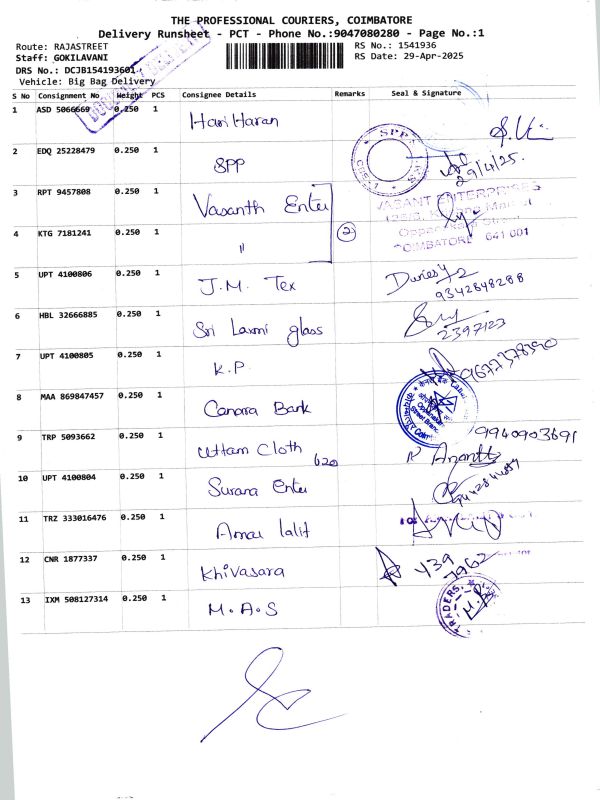 THE PROFESSIONAL COURIERS, COIMBATORE
Delivery Runsheet - PCT - Phone No.:9047080280 - Page No.:1
Route: RAJASTREET
RS No.: 1541936
Staff: GOKILAVANI
RS Date: 29-Apr-2025
DRS No.: DCJB154193601
Vehicle: Big Bag Delivery
S No Consignment No Weight PCS Consignee Details Remarks Seal & Signature
1 ASD 5066669 0.250 1 Hari Haran
2 EDQ 25228479 0.250 1 SPP 29/4/25.
3 RPT 9457808 0.250 1 Vasanth Enter VASANT ENTERPRISES
4 KTG 7181241 0.250 1 " 2 COIMBATORE 641 001
5 UPT 4100806 0.250 1 J.M. Tex 9342848288
6 HBL 32666885 0.250 1 Sri Laxmi glass 2397123
7 UPT 4100805 0.250 1 K.P. 9677378390
8 MAA 869847457 0.250 1 Canara Bank
9 TRP 5093662 0.250 1 Uttam Cloth 620 9940903691
10 UPT 4100804 0.250 1 Surana Enter
11 TRZ 333016476 0.250 1 Amar lalit
12 CNR 1877337 0.250 1 Khivasara 439 7962
13 IXM 508127314 0.250 1 M.A.S TRADERS